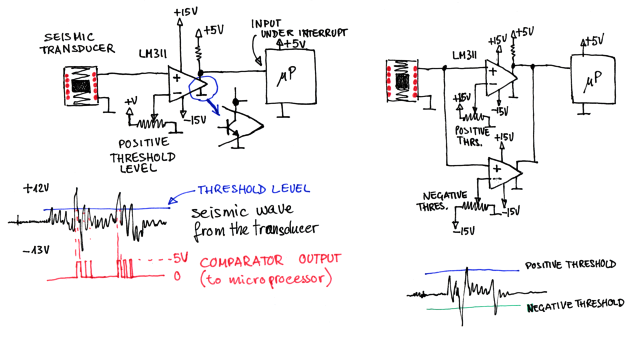 +15V
+5V
INPUT
UNDER INTERRUPT
SEISMIC
TRANSDUCER
LM311
+5V
μP
+
−
+V
−15V
POSITIVE
THRESHOLD
LEVEL
+12V
THRESHOLD LEVEL
seismic wave
from the transducer
−13V
5V
COMPARATOR OUTPUT
0
(to microprocessor)
+15V
+5V
+5V
LM311
μP
+
−
+15V
−15V
POSITIVE
THRS.
+15V
+
−
NEGATIVE
THRES.
−15V
−15V
POSITIVE THRESHOLD
NEGATIVE THRESHOLD